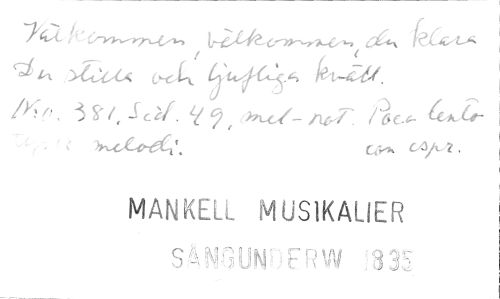 Välkommen, välkommen, du klara
Du stilla och ljufliga kväll.
No. 381, Sid. 49, mel-not. Poco lento
melodi. con espr.
MANKELL MUSIKALIER
SÅNGUNDERW 1835